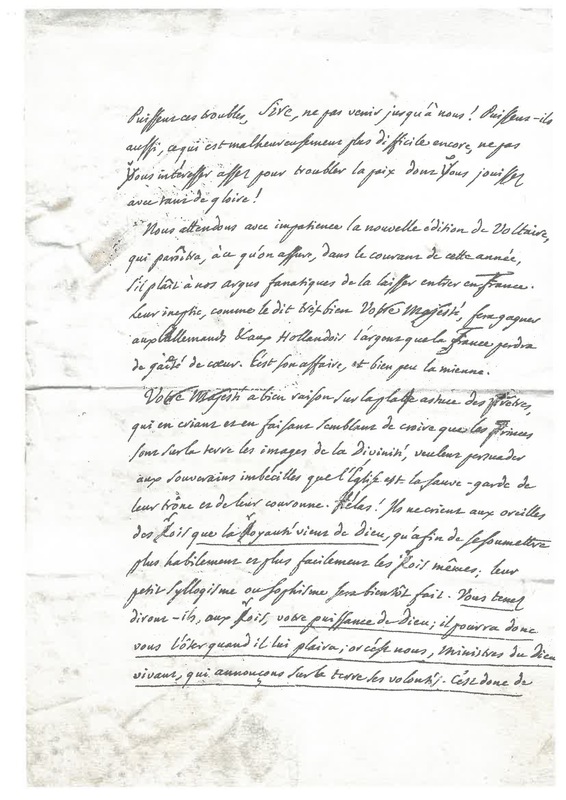 Puissent ces troubles, Sire, ne pas venir jusqu'à nous! Puissent-ils
aussi, ce qui est malheureusement plus difficile encore, ne pas
Vous intéresser assez pour troubler la paix dont Vous jouissez
avec tant de gloire!
Nous attendons avec impatience la nouvelle édition de Voltaire,
qui paroîtra, à ce qu'on assure, dans le courant de cette année,
s'il plaît à nos argus fanatiques de la laisser entrer en France.
Leur ineptie, comme le dit très bien Votre Majesté, fera gagner
aux Allemands & aux Hollandois l'argent que la France perdra
de gaîté de cœur. C'est son affaire, et bien peu la mienne.
Votre Majesté a bien raison sur la plate astuce des Prêtres,
qui en criant et en faisant semblant de croire que les Princes
sont sur la terre les images de la Divinité, veulent persuader
aux souverains imbécilles que l'Église est la sauve-garde de
leur trône et de leur couronne. Hélas! Ils ne crient aux oreilles
des Rois que la Royauté vient de Dieu, qu'afin de se soumettre
plus habilement et plus facilement les Rois mêmes; leur
petit syllogisme ou sophisme sera bientôt fait. Vous tenez
diront-ils, aux Rois, votre puissance de Dieu; il pourra donc
vous l'ôter quand il lui plaira; or c'est nous, ministres du Dieu
vivant, qui annonçons sur la terre ses volontés. C'est donc de